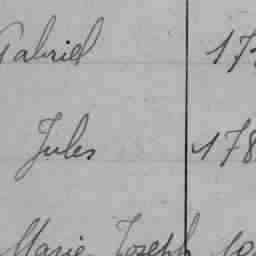 Gabriel 17
Jules 178
Marie Joseph